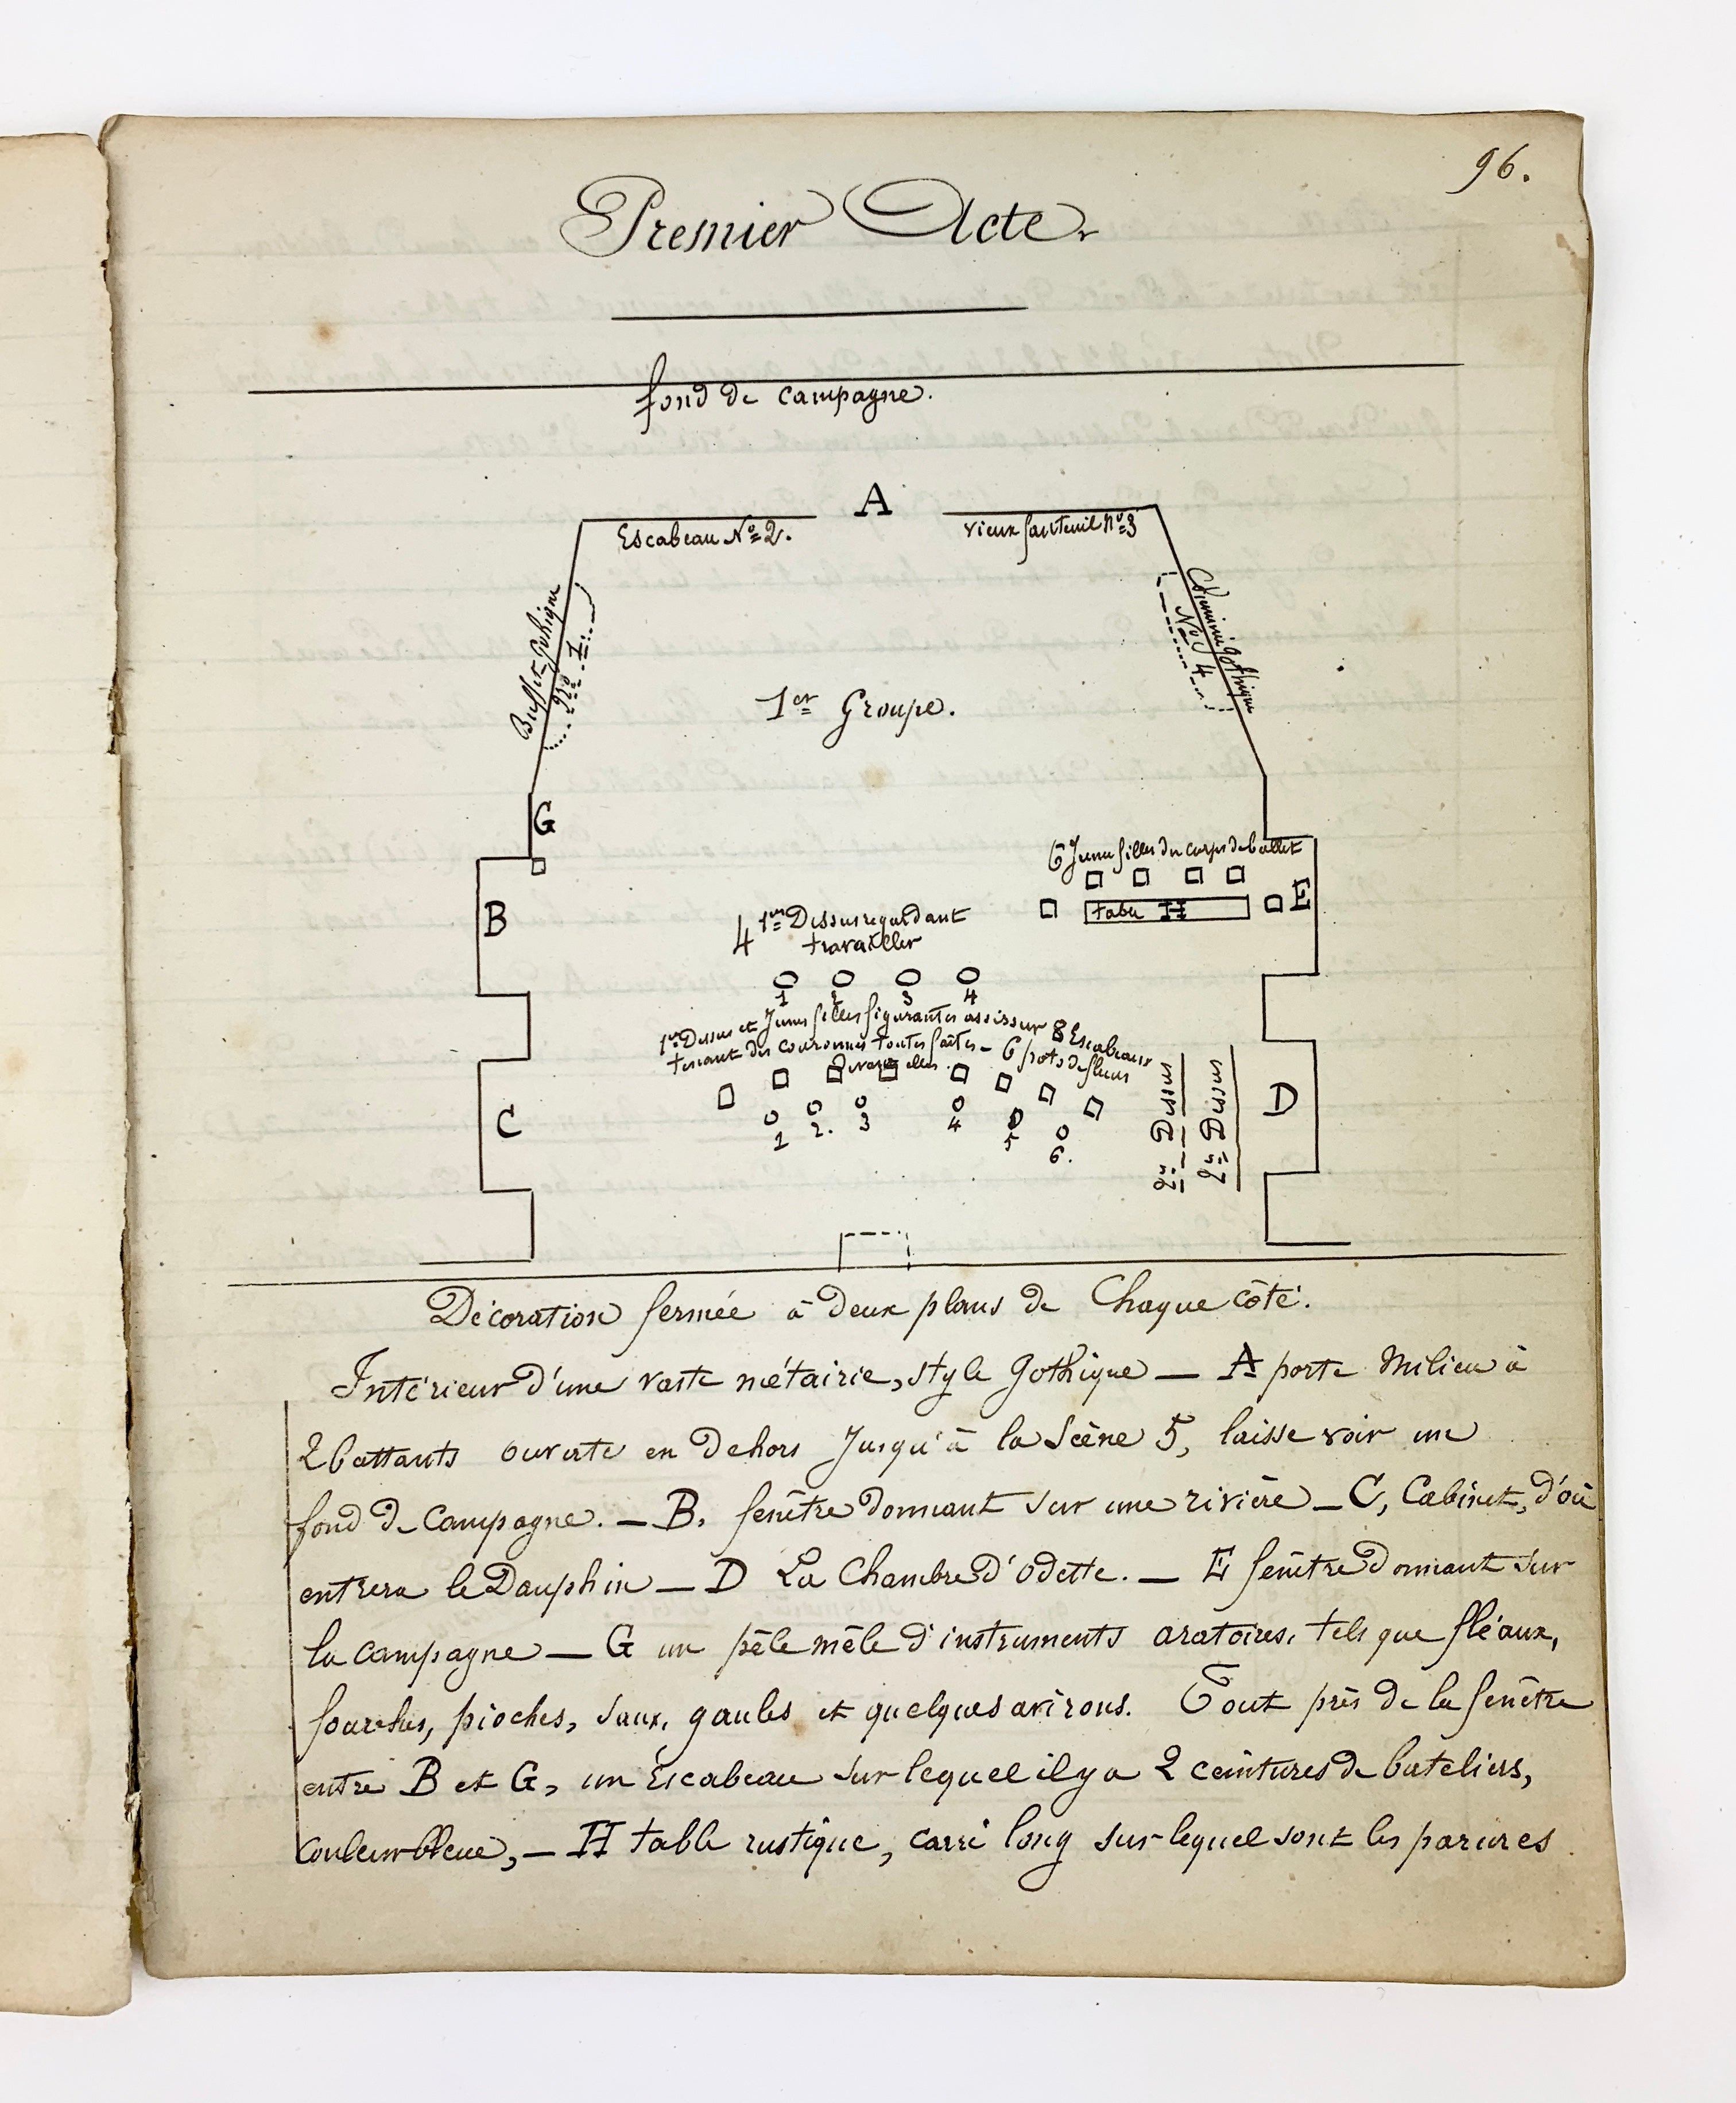 96.
Premier Acte.
fond de campagne.
A
Escabeau Nº 2.
vieux fauteuil nº 3
Buffet Gothique
Nº 1
Cheminée gothique
Nº 4
1er Groupe.
G
6 Jeunes filles du corps de ballet
B
table H
E
4 1ers Dessus regardant
travailler
1 2 3 4
1ers Dessus et Jeunes filles figurantes assis sur 8 Escabeaux
tenant des couronnes toutes faites - 6 pots de fleurs
devant elles.
C
1 2. 3 4 5 6.
2ds Dessus
2ds Dessus
D
Décoration fermée à deux plans de Chaque côté.
Intérieur d'une vaste métairie, style gothique — A porte Milieu à
2 battants ouverte en dehors Jusqu'à la Scène 5, laisse voir un
fond de Campagne. — B. fenêtre donnant sur une rivière — C, Cabinet, d'où
entrera le Dauphin — D La Chambre d'Odette. — E fenêtre donnant sur
la campagne — G un pêle mêle d'instruments aratoires, tels que fléaux,
fourches, pioches, faux, gaules et quelques avirons. Tout près de la fenêtre
entre B et G, un Escabeau sur lequel il y a 2 ceintures de bateliers,
couleur bleue, — H table rustique, carré long sur lequel sont les parures